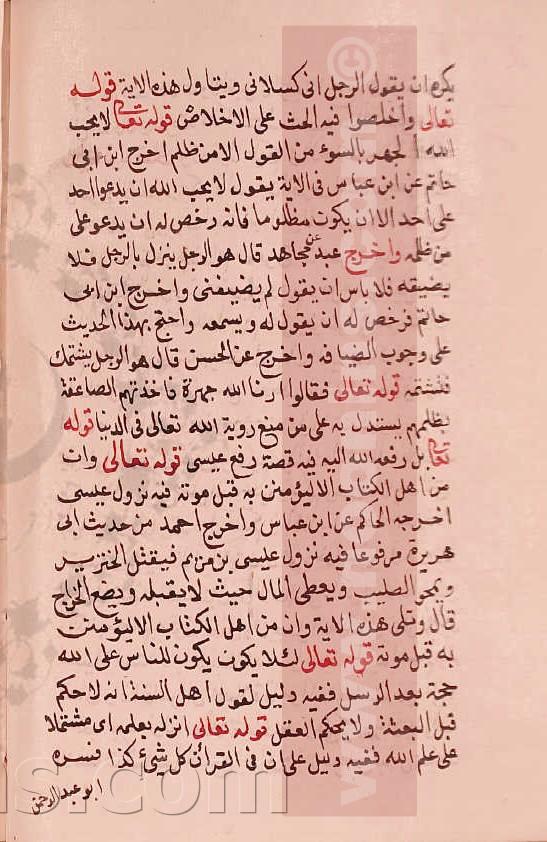 يكره ان يقول الرجل انى كسلانى ويتاول هذه الاية قوله
تعالى وأخلصوا فيه الحث على الاخلاص قوله تعالى لا يحب
الله الجهر بالسوء من القول الا من ظلم اخرج ابن ابى
حاتم عن ابن عباس فى الاية يقول لا يحب الله ان يدعوا احد
على احد الا ان يكون مظلوما فانه رخص له ان يدعو على
من ظلمه واخرج عبد عن مجاهد قال هو الرجل ينزل بالرجل فلا
يضيفه فلا باس ان يقول لم يضيفنى واخرج ابن ابى
حاتم فرخص له ان يقول له ويسمعه واحتج بهذا الحديث
على وجوب الضيافه واخرج عن الحسن قال هو الرجل يشتمك
فتشتمه قوله تعالى فقالوا ارنا الله جهرة فاخذتهم الصاعقة
بظلمهم يستدل به على من منع روية الله تعالى فى الدنيا قوله
تعالى بل رفعه الله اليه فيه قصة رفع عيسى قوله تعالى وان
من اهل الكتاب الا ليؤمنن به قبل موته فيه نزول عيسى
اخرجه الحاكم عن ابن عباس واخرج احمد من حديث ابى
هريرة مرفوعا فيه نزول عليسى بن مريم فيقتل الخنزير
ويمحو الصليب ويعطى المال حيث لا يقبله ويضع الخراج
قال وتلى هذه الاية وان من اهل الكتاب الا ليؤمنن
به قبل موته قوله تعالى لئلا يكون يكون للناس على الله
حجة بعد الرسل ففيه دليل لقول اهل السنة انه لا حكم
قبل البعثة ولا يحكم العقل قوله تعالى انزله بعلمه اى مشتملا
على علم الله ففيه دليل على ان فى القرآن كل شئ كذا فسره
ابو عبد الرحمن